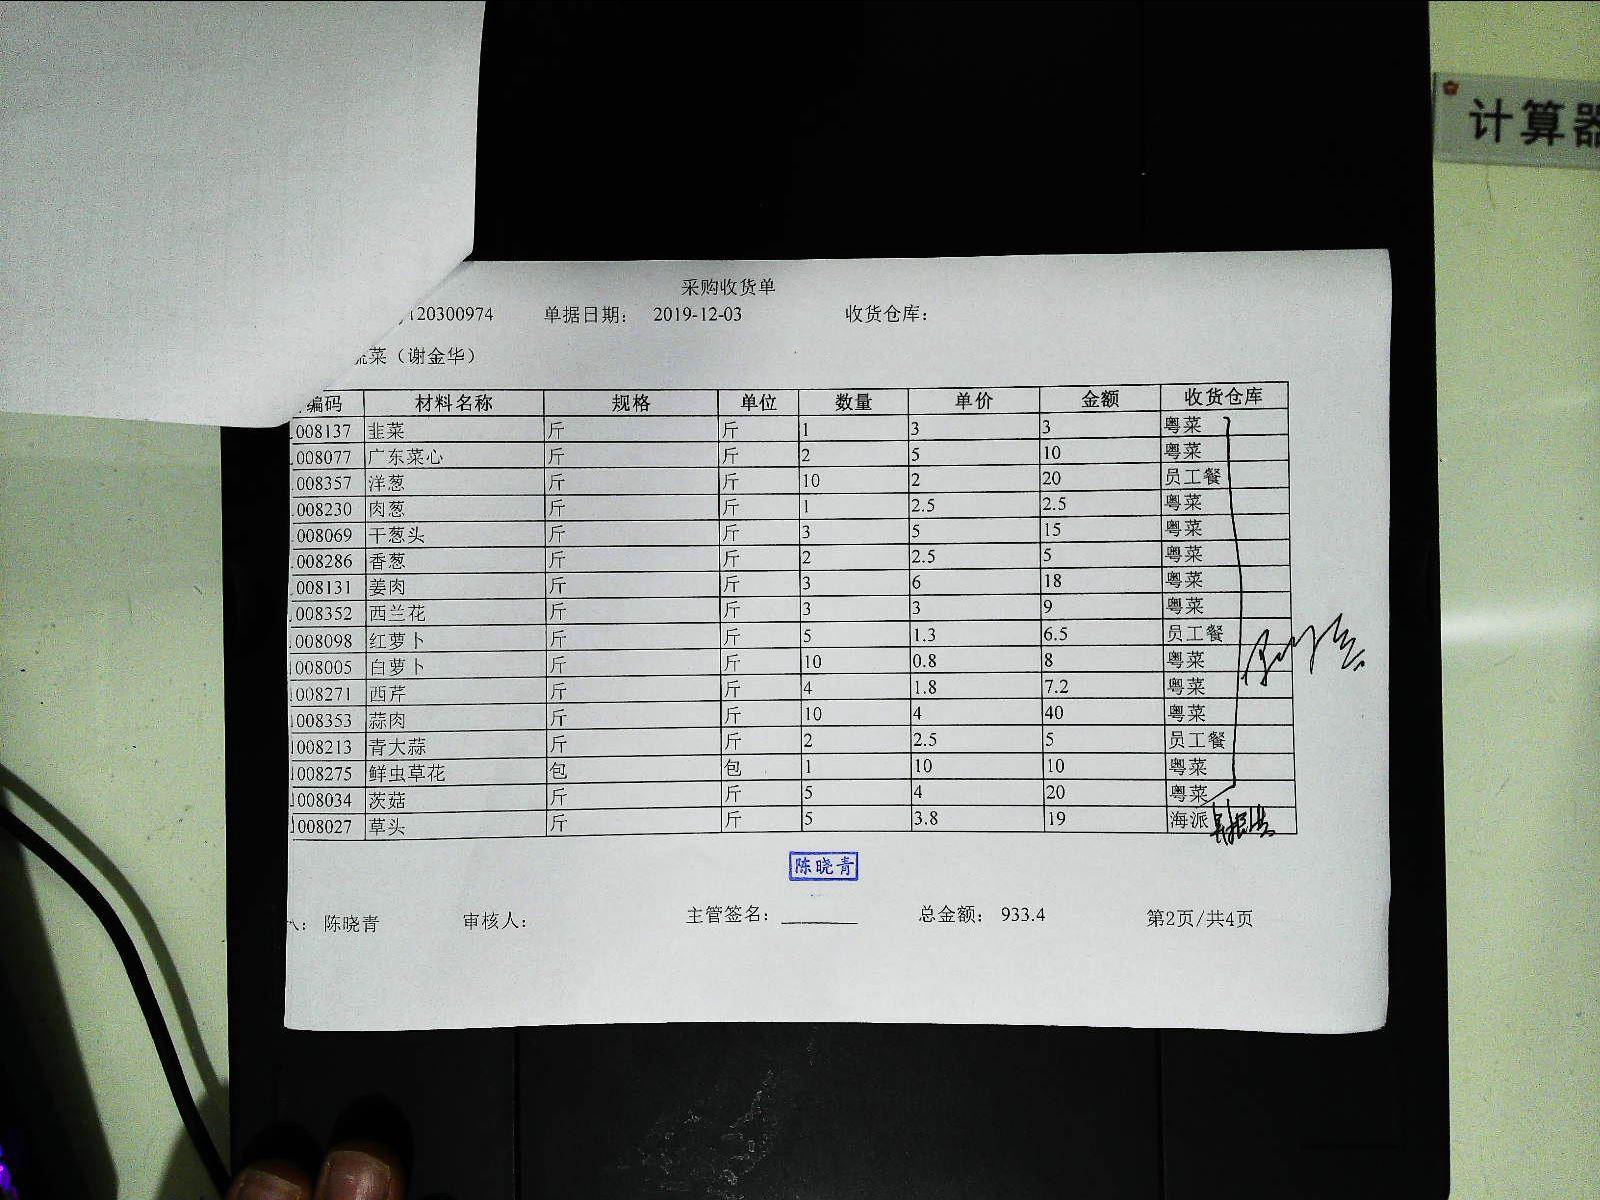 计算器
采购收货单
120300974 单据日期： 2019-12-03 收货仓库：
菜（谢金华）
编码 材料名称 规格 单位 数量 单价 金额 收货仓库
008137 韭菜 斤 斤 1 3 3 粤菜
008077 广东菜心 斤 斤 2 5 10 粤菜
008357 洋葱 斤 斤 10 2 20 员工餐
008230 肉葱 斤 斤 1 2.5 2.5 粤菜
008069 干葱头 斤 斤 3 5 15 粤菜
008286 香葱 斤 斤 2 2.5 5 粤菜
008131 姜肉 斤 斤 3 6 18 粤菜
008352 西兰花 斤 斤 3 3 9 粤菜
008098 红萝卜 斤 斤 5 1.3 6.5 员工餐
008005 白萝卜 斤 斤 10 0.8 8 粤菜
008271 西芹 斤 斤 4 1.8 7.2 粤菜
008353 蒜肉 斤 斤 10 4 40 粤菜
008213 青大蒜 斤 斤 2 2.5 5 员工餐
008275 鲜虫草花 包 包 1 10 10 粤菜
008034 茨菇 斤 斤 5 4 20 粤菜
008027 草头 斤 斤 5 3.8 19 海派
陈晓青
陈晓青 审核人： 主管签名： 总金额： 933.4 第2页/共4页